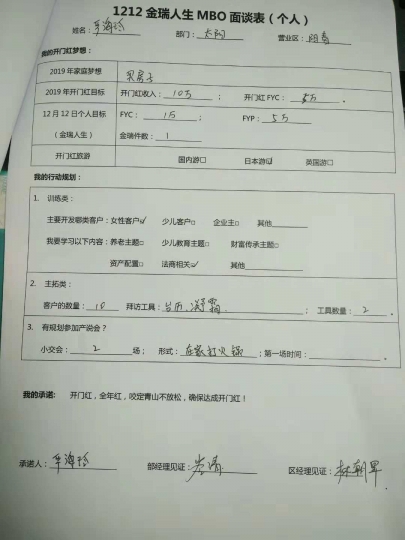 1212 金瑞人生 MBO 面谈表（个人）
姓名： 部门： 营业区：
我的开门红梦想：
2019 年家庭梦想 买房子
2019 年开门红目标 开门红收入： 10万 ； 开门红 FYC： 5万 。
12 月 12 日个人目标 FYC： 1万 ； FYP： 5万
（金瑞人生） 金瑞件数： 1
开门红旅游 国内游□ 日本游☑ 英国游□
我的行动规划：
1. 训练类：
主要开发哪类客户：女性客户☑ 少儿客户□ 企业主□ 其他
我要学习以下内容：养老主题□ 少儿教育主题□ 财富传承主题□
资产配置□ 法商相关☑ 其他
2. 主拓类：
客户的数量： 10 拜访工具： 台历、凝霜 ； 工具数量： 2 。
3. 有规划参加产说会？
小交会： 2 场； 形式： 在家打火锅 ；第一场时间： 。
我的承诺： 开门红，全年红，咬定青山不放松，确保达成开门红！
承诺人： 部经理见证： 区经理见证：